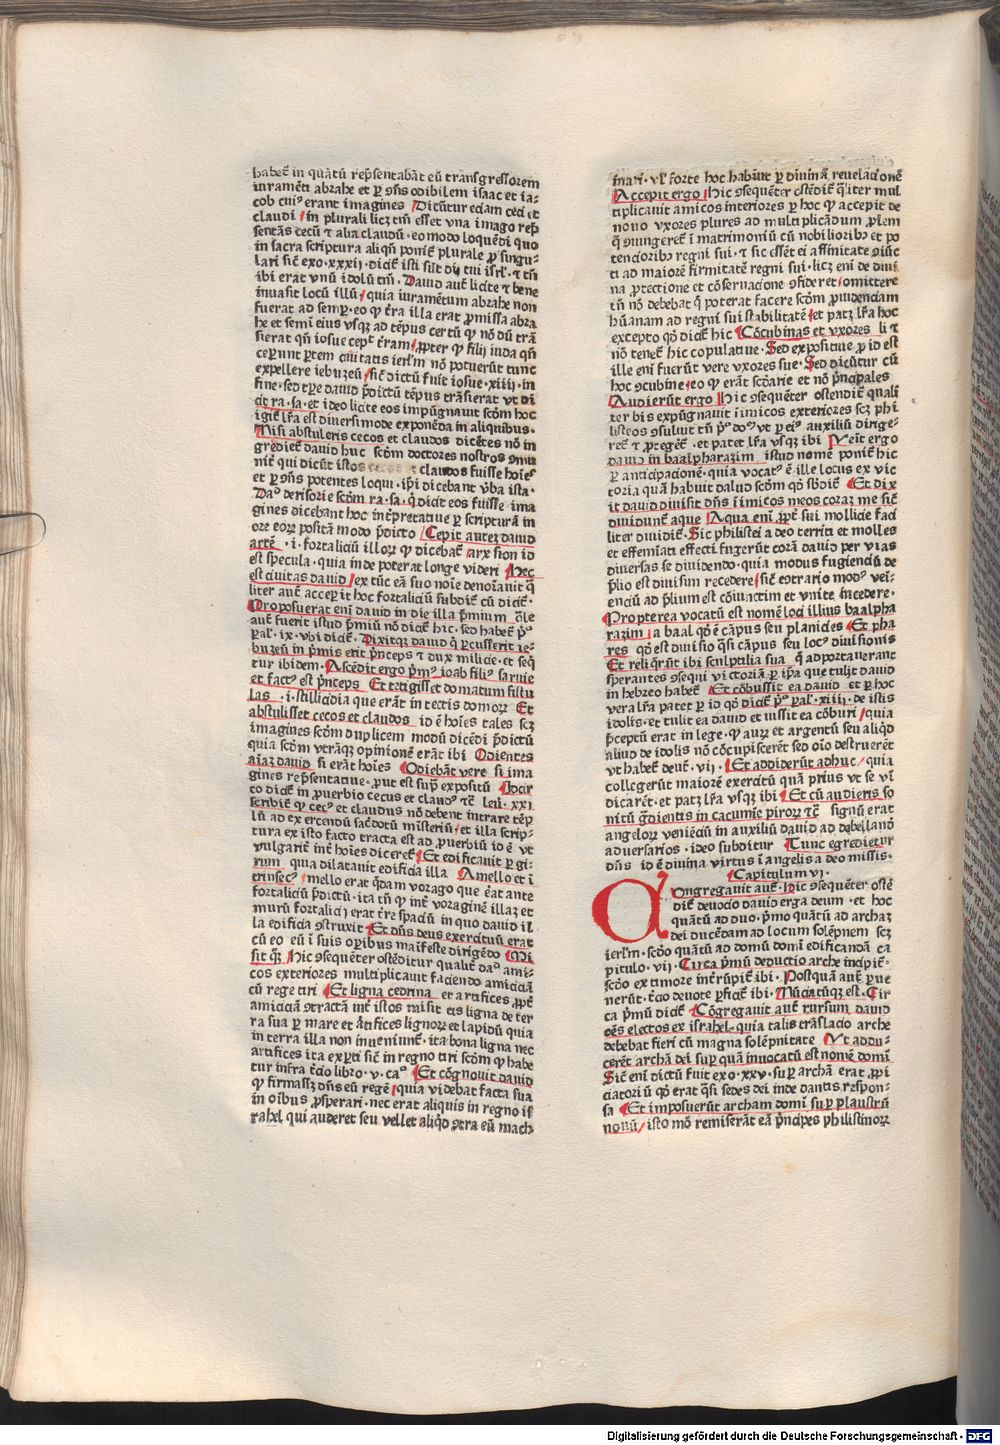 habet̃ in quãtũ rep̃sentabãt eũ transgressorem
iuramẽti abrahe et ꝑ ꝯñs odibilem isaac et ia-
cob cui⁹ erant imagines Dicũtur eciam ceci et
claudi in plurali licꝫ tm̃ esset vna imago rep̃
sentãs cecũ ⁊ alia claudũ · eo modo loquẽdi quo
in sacra scriptura aliqñ ponit̃ plurale ꝓ singu-
lari sic̃ exo · xxxij · dicit̃ isti sũt dij tui isrl̃ · ⁊ tñ
ibi erat vnũ idolũ tm̃ · Dauid aut̃ licite ⁊ bene
inuasit locũ illũ quia iuramẽtum abrahe non
fuerat ad semꝑ · eo ꝙ t̃ra illa erat ꝓmissa abra
he et semĩ eius vsqꝫ ad tẽpus certũ ꝙ nõ dũ trã
sierat qñ iosue cepit t̃ram ꝓpter ꝙ filij iuda qñ
ceperunt ꝑtem ciuitatis ierl̃m nõ potuerũt tunc
expellere iebuzeũ sic̃ dictũ fuit iosue · xiiij · in
fine · sed tꝑe dauid p̃dictũ tẽpus trãsierat vt di
cit ra · sa · et ideo licite eos impũgnauit scðm hoc
igit̃ lr̃a est diuersimode exponẽda in aliquibus ·
Nisi abstuleris cecos et claudos dicẽtes nõ in
gredieris dauid huc scðm doctores nostros ꝯmu
nit̃ qui dicũt istos cecos ⁊ claudos fuisse hoĩes
et ꝑ ꝯñs potentes loqui · ip̃i dicebant v̾ba ista ·
Da⁹ derisorie scðm ra · sa · q̃ dicit eos fuisse ima
gines dicebant hoc int̃pretatiue ꝑ scripturã in
ore eorꝝ positã modo p̃dicto Cepit autẽ dauid
artẽ · i · fortaliciũ illorꝝ ꝙ dicebat̃ arx sion id
est specula · quia inde poterat longe videri Hec
est ciuitas dauid ex tũc eã suo noĩe denoĩauit q̃
liter aut̃ acceperit hoc fortaliciũ subdit̃ cũ dicit̃ ·
Proposuerat eni dauid in die illa p̃mium q̃le
aut̃ fuerit istud p̃miũ nõ dicit̃ hic · sed habet̃ p̾°
pal̾ · ix · vbi dicit̃ · Dixitqꝫ dauid q̃ ꝑcusserit ie-
buzeũ in p̃mis erit p̃nceps ⁊ dux milicie · et seq̃
tur ibidem · Ascẽdit ergo p̃m⁹ ioab fili⁹ saruie
et fact⁹ est p̃nceps Et tetigisset domatum fistu
las · i · stillicidia que erãt in tectis domorꝝ Et
abstulisset cecos et claudos id ẽ hoĩes tales scꝫ
imagines scðm duplicem modũ dicẽdi p̃dictũ
quia scðm vtrãqꝫ opinionẽ erãt ibi Odientes
aĩaꝫ dauid si erãt hoĩes Odiebãt vere si ima
gines rep̃sentatiue · ꝓut est sup̃ expositũ Idcir
co dicit̃ in ꝓuerbio cecus et claud⁹ ⁊c̃ leui · xxi
scribit̃ ꝙ cec⁹ et claudus nõ debent intrare tẽp
lũ ad exercendũ sac̾dotũ misteriũ et illa scrip-
tura ex isto facto tracta est ad ꝓuerbiũ id ẽ vt
vulgarit̃ int̃ hoĩes diceret̃ Et edificauit ꝑ gi-
rum qua dilatauit edificia illa A mello et ĩ
trinsec⁹ mello erat q̃dam vorago que ẽat ante
fortaliciũ p̃dictũ · ita tñ ꝙ int̃ voraginẽ illaꝫ et
murũ fortalicij erat t̃re spaciũ in quo dauid il
la edificia ꝯstruxit Et dñs deus exercituũ erat
cũ eo eũ ĩ suis oꝑibus maĩfeste dirigẽdo Mi
sit q̃ꝫ Hic ꝯseq̃nter ostẽditur qualit̃ da⁹ ami-
cos exteriores multiplicauit faciendo amiciciã
cũ rege tiri Et ligna cedrina et artifices ꝓpt̃
amiciciã ꝯtractã int̃ istos misit eis ligna de ter
ra sua ꝑ mare et artifices lignorꝝ et lapidũ quia
in terra illa non inueniunt̃ · ita bona ligna nec
artifices ita exꝑti sic̃ in regno tiri scðm ꝙ habe
tur infra t̾cio libro · v · ca° Et cõgnouit dauid
ꝙ firmassꝫ dñs eũ regẽ quia videbat facta sua
in oĩbus ꝓsperari · nec erat aliquis in regno is
rahel qui auderet seu vellet aliq̃d ꝯtra eũ mach
inari · vl̾ forte hoc habuit ꝑ diuinã reuelacionẽ
Accepit ergo Hic ꝯseq̃nter oñdit̃ q̃liter mul
tiplicauit amicos interiores ꝑ hoc ꝙ accepit de
nouo vxores plures ad multiplicãdum ꝓlem
q̃ ꝯiungeret̃ ĩ matrimoniũ cũ nobiliorib⁹ et po
tenciorib⁹ regni sui · ⁊ sic essẽt ei affinitate ꝯiũc
ti ad maiorẽ firmitatẽ regni sui · licꝫ eni de diui
na ꝓtectione et cõseruacione ꝯfideret omittere
tñ nõ debebat q̃ poterat facere scðm ꝓuidenciam
hũanam ad regni sui stabilitatẽ et patꝫ lr̃a hoc
excepto qð dicit̃ hic Cõcubinas et vxores li ⁊
nõ tenet̃ hic copulatiue · Sed expositiue ꝓ id est
ille eni fuerũt vere vxores sue · Sed dicũtur cũ
hoc ꝯcubine eo ꝙ erãt scðarie et nõ p̃ncipales
Audierũt ergo Hic ꝯseq̃nter ostendit̃ quali
ter bis expũgnauit iĩmicos exteriores scꝫ phi
listeos ꝯsuluit tñ p̾° do⁹ vt ꝑ ei⁹ auxiliũ dirige-
ret̃ ⁊ ꝓteget̃ · et patet lr̃a vsqꝫ ibi Veit ergo
dauid in baalpharazim istud nomẽ ponit̃ hic
ꝑ anticipacionẽ · quia vocat⁹ ẽ ille locus ex vic
toria quã habuit dauid scðm qð sb̾dit̃ Et dix
it dauid diuisit dñs iĩmicos meos coraꝫ me sic̃
diuidunt̃ aque Aqua eni ꝓpt̃ sui mollicie faci
liter diuidit̃ · Sic philistei a deo territi et molles
et effemiati effecti fugerũt corã dauid per vias
diuersas se diuidendo · quia modus fugienciũ de
p̃lio est diuisim recedere sic̃ eꝯtrario mod⁹ vei-
enciũ ad p̃lium est cõiunctim et vnite incedere ·
Propterea vocatũ est nomẽ loci illius baalpha
razim a baal qð ẽ cãpus seu planicies Et pha
res qð est diuisio q̃si cãpus seu loc⁹ diuisionis
Et reliq̃rũt ibi sculptilia sua q̃ adportauerant
sperantes ꝯseqi victoriã ꝑ ip̃a que tulit dauid
in hebreo habet̃ Et cõbussit ea dauid et ꝑ hoc
vera lr̃a patet ꝑ id qð dicit̃ p̾° pal̾ · xiiij · de istis
idolis · et tulit ea dauid et iussit ea cõburi quia
p̃ceptũ erat in lege · ꝙ aurꝝ et argentũ seu aliq̃d
aliud de idolis nõ cõcupiscerẽt sed oĩo destruerẽt
vt habet̃ deut̃ · vij · Et addiderũt adhuc quia
collegerũt maiorẽ exercitũ quã prius vt se vĩ
dicarẽt · et patꝫ lr̃a vsqꝫ ibi Et cũ audieris so
nitũ g̾dientis in cacumĩe pirorꝝ ⁊c̃ signũ erat
angelorꝝ veniẽciũ in auxiliũ dauid ad debellandos
aduersarios · ideo subditur Tunc egredietur
dñs id ẽ diuina virtus ĩ angelis a deo missis ·
Capitulum vj ·
Congregauit aut̃ · Hic ꝯseq̃nter ostẽ
dit̃ deuocio dauid erga deum · et hoc
quãtũ ad duo · p̾mo quãtũ ad archaꝫ
dei ducẽdam ad locum solẽpnem scꝫ
ierl̃m · scðo quãtũ ad domũ domĩ edificandã ca
pitulo · vij · Circa p̾mũ deductio arche incipit̃ ·
scðo ex timore int̃rũpit̃ ibi · Postquã aut̃ ꝑue
nerũt · t̾cio deuote ꝑficit̃ ibi · Nũciatũqꝫ est · Cir
ca p̾mũ dicit̃ Cõgregauit aut̃ rursum dauid
oẽs electos ex israhel quia talis trãslacio arche
debebat fieri cũ magna solẽpnitate Vt addu-
cerẽt archã dei suꝑ quã inuocatũ est nomẽ domĩ
Sic̃ eni dictũ fuit exo · xxv · suꝑ archã erat ꝓpi
ciatoriũ qð erat q̃si sedes dei inde dantis respon-
sa Et imposuerũt archam domĩ suꝑ plaustrũ
nouũ isto mõ remiserãt eã p̃ncipes philistinorꝝ
Digitalisierung gefördert durch die Deutsche Forschungsgemeinschaft - DFG